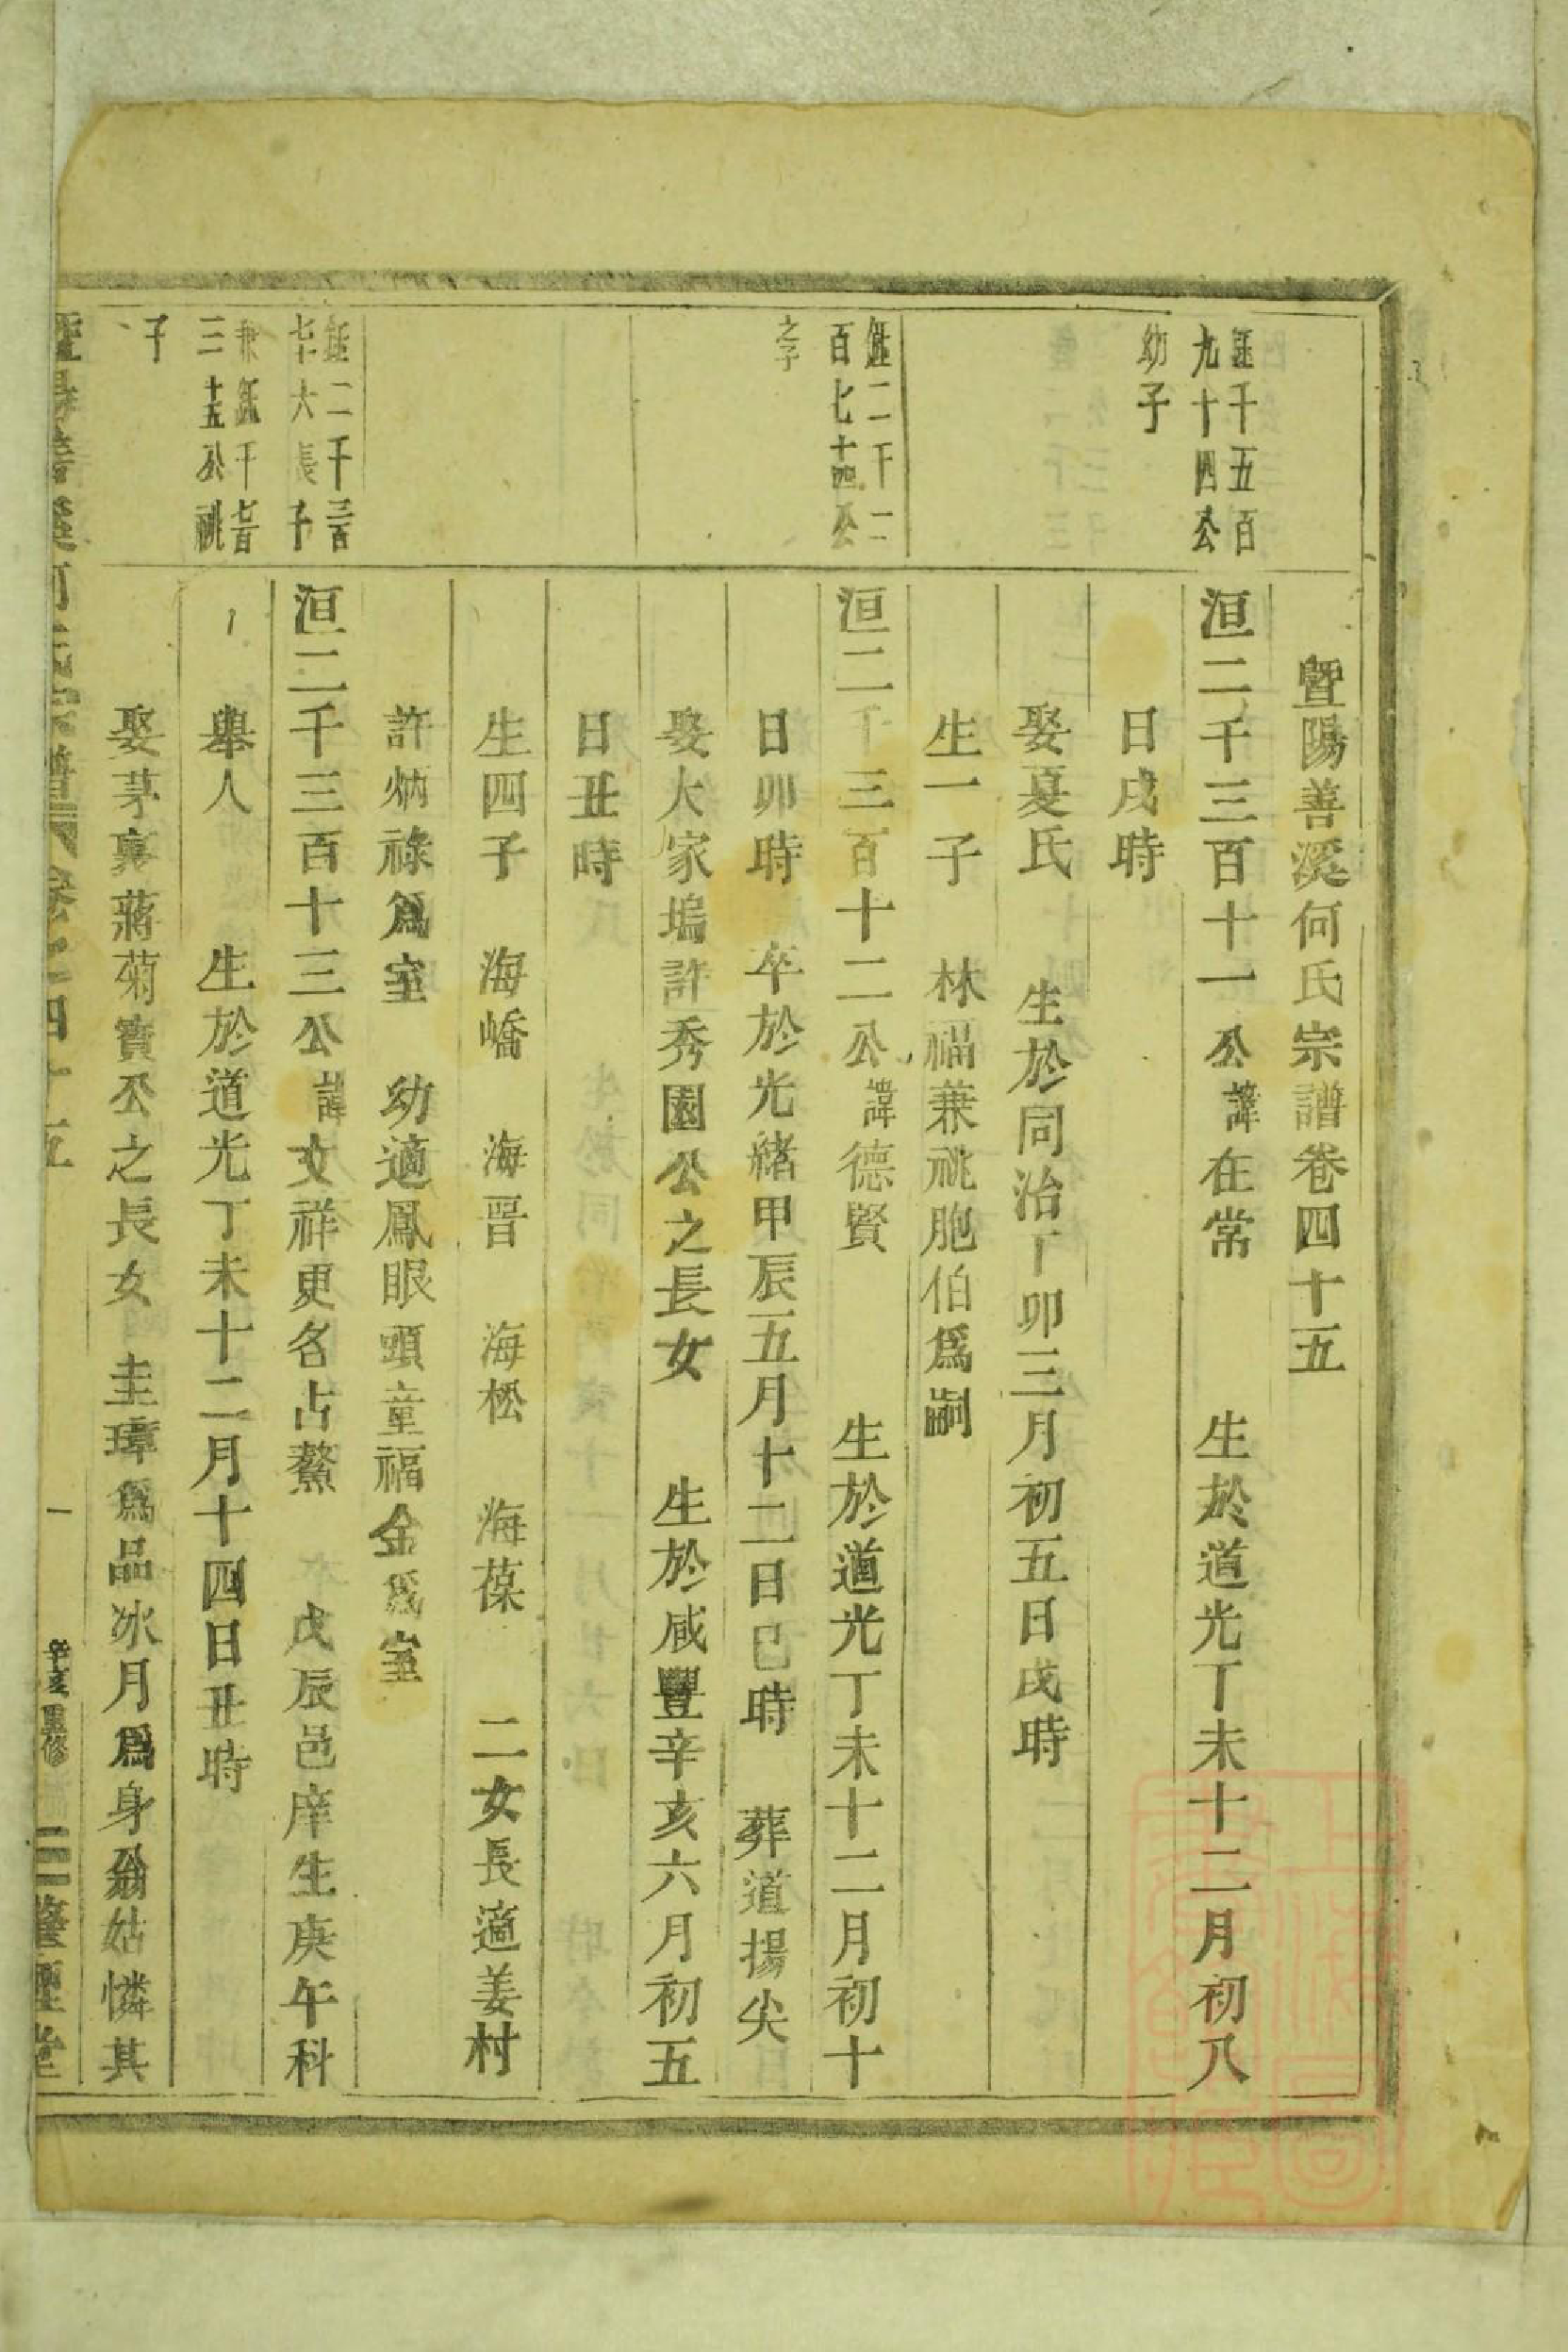 暨陽善溪何氏宗譜卷四十五
鉦千五百
九十四公
幼子
洹二千三百十一公諱在常 生於道光丁未十二月初八
日戌時
娶夏氏 生於同治丁卯三月初五日戌時
生一子 林福兼祧胞伯爲嗣
鉦二千二
百七十四公
之子
洹二千三百十二公諱德賢 生於道光丁未十二月初十
日卯時 卒於光緒甲辰五月十二日巳時 葬道揚尖
娶大家塢許秀園公之長女 生於咸豐辛亥六月初五
日丑時
生四子 海嶠 海晋 海松 海葆 二女長適姜村
許炳祿爲室 幼適鳳眼頭童福金爲室
鉦二千三百
七十六長子
兼鉦千七百
三十五公祧
子
洹二千三百十三公諱文祥更名占鰲 戊辰邑庠生庚午科
舉人 生於道光丁未十二月十四日丑時
娶茅裏蔣菊寶公之長女 圭璋爲品冰月爲身翁姑憐其
暨陽善溪何氏宗譜 卷之四十五 一 辛亥重修